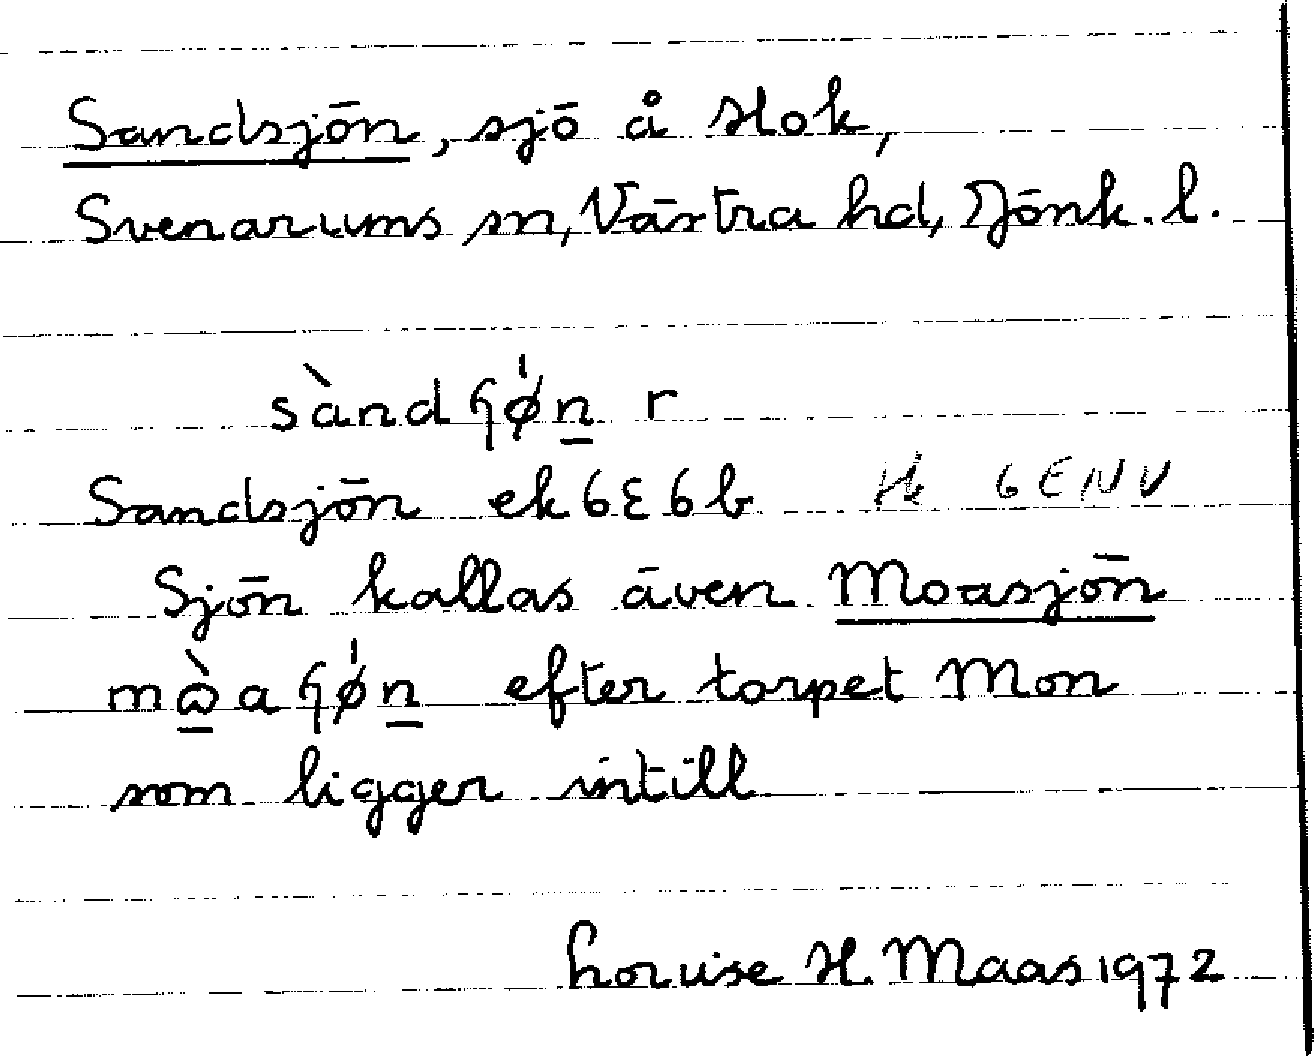 Sandsjön, sjö å Hok,
Svenarums sn, Västra hd, Jönk. l.
sàndɧø̀n r
Sandsjön ek 6E6b 6E NV
Sjön kallas även Moasjön
mɷ̀aɧø̀n efter torpet Mon
som ligger intill
Louise H. Maas 1972